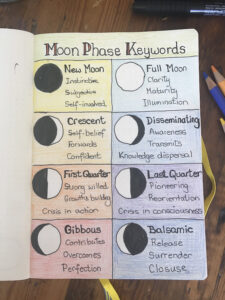 Moon Phase Keywords
New Moon
Instinctive
Subjective
Self-involved
Full Moon
Clarity
Maturity
Illumination
Crescent
Self-belief
Forwards
Confident
Disseminating
Awareness
Transmits
Knowledge dispersal
First Quarter
Strong willed
Growth & building
Crisis in action
Last Quarter
Pioneering
Reorientation
Crisis in consciousness
Gibbous
Contributes
Overcomes
Perfection
Balsamic
Release
Surrender
Closure